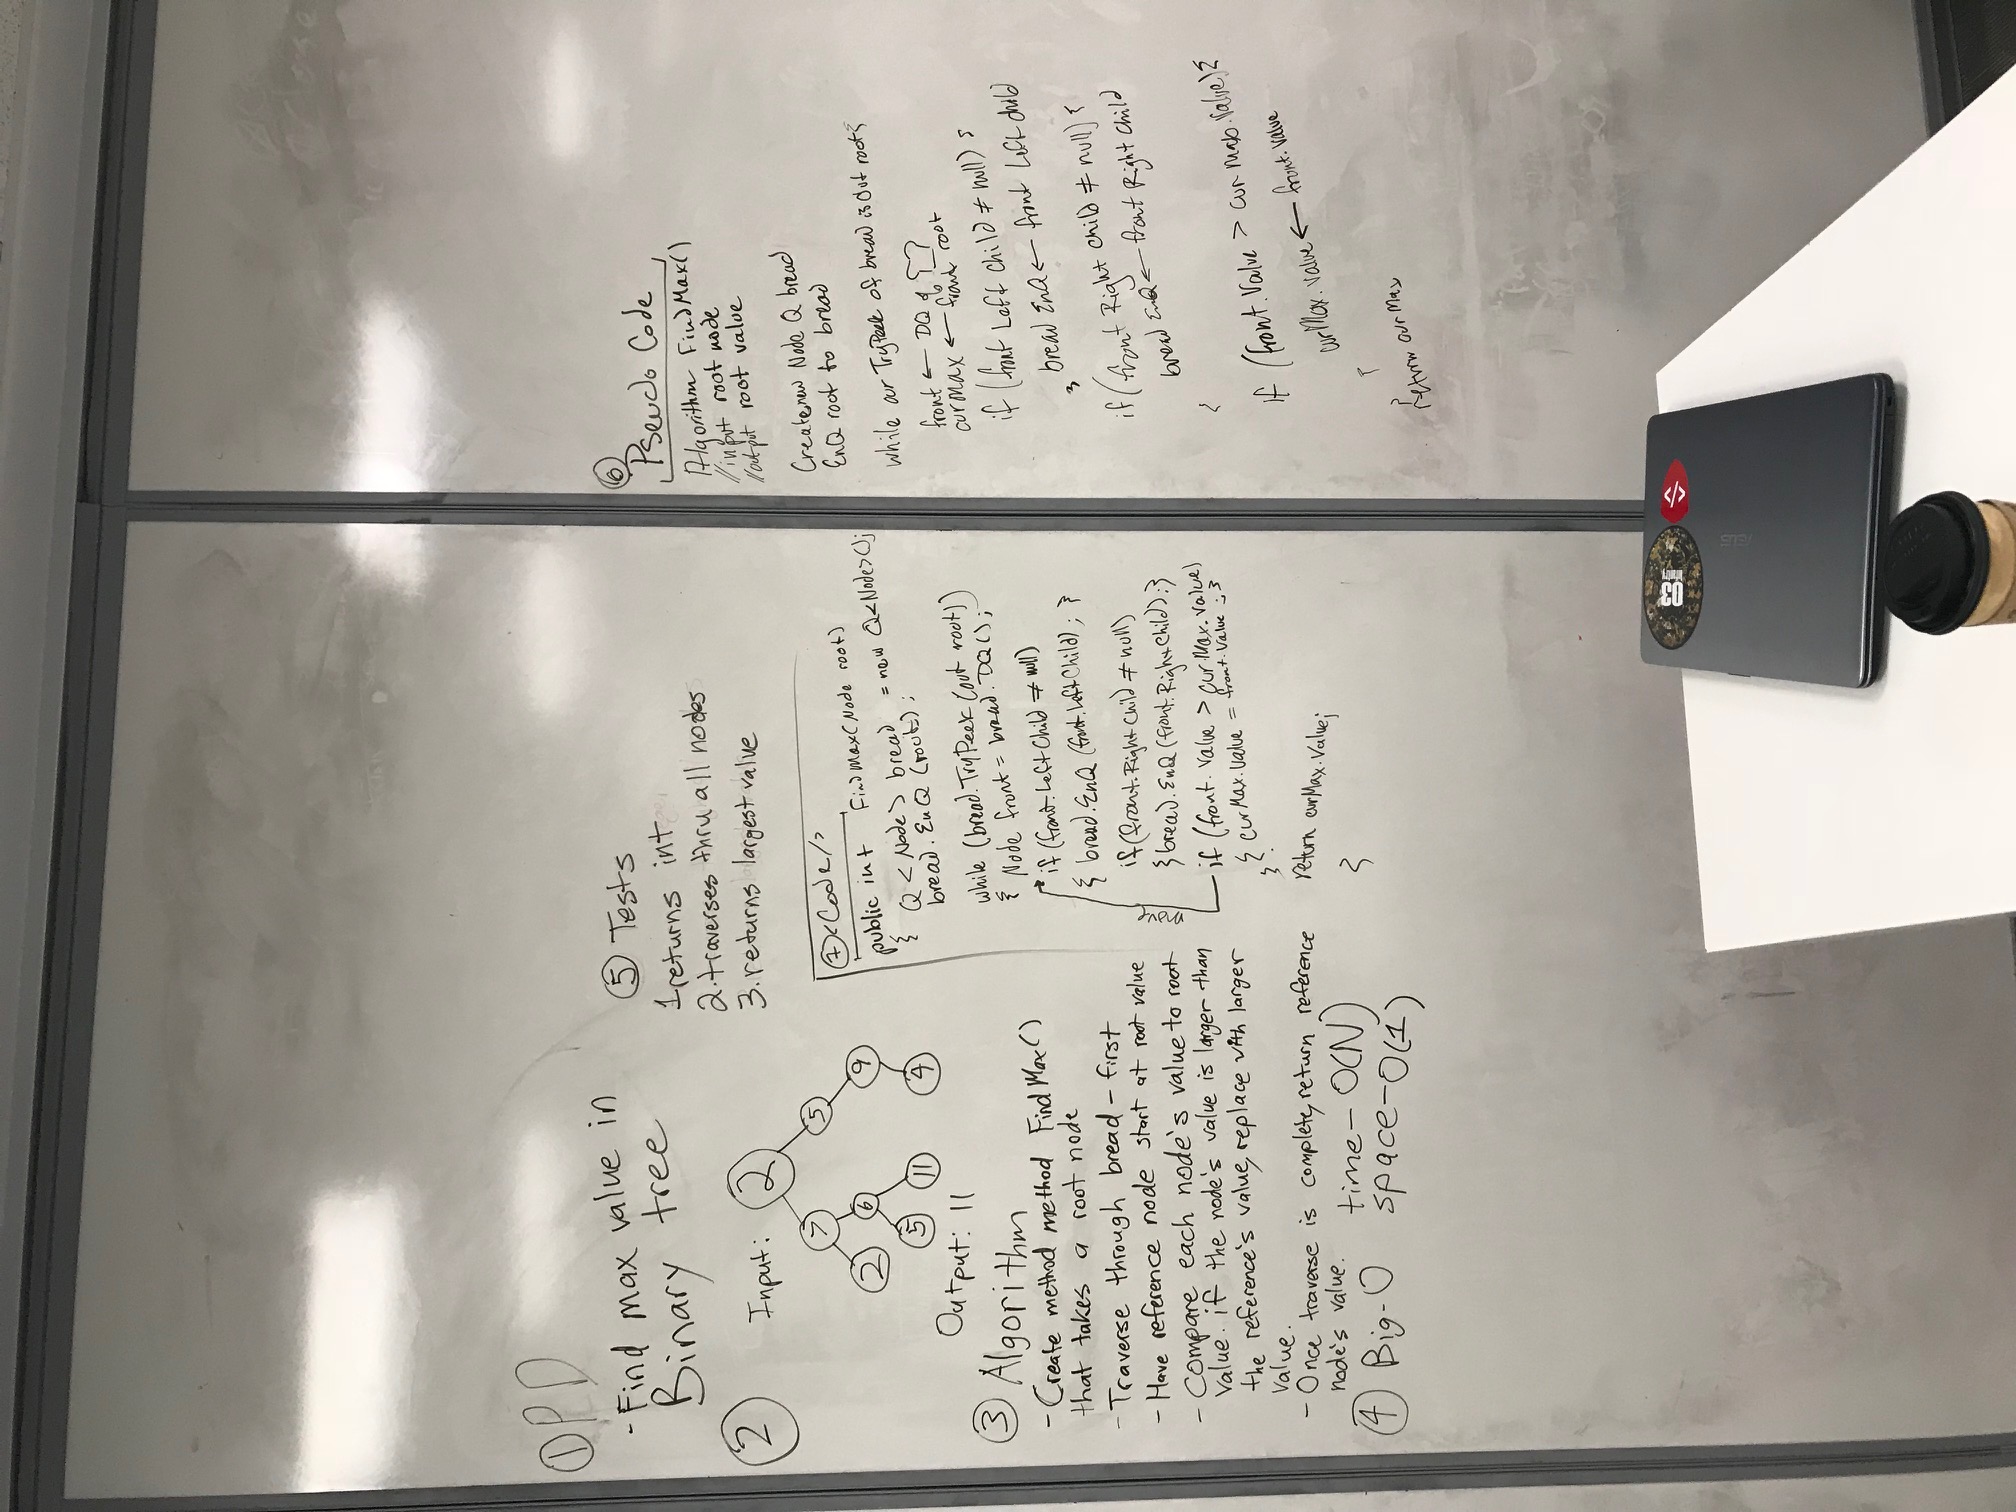 ① PD
- Find max value in
Binary tree
②
Input: 2
7 5
2 6 9
5 11 4
Output: 11
③ Algorithm
- Create method method FindMax()
that takes a root node
- Traverse through bread-first
- Have reference node start at root value
- Compare each node's value to root
value. if the node's value is larger than
the reference's value, replace with larger
value.
- Once traverse is complete, return reference
node's value.
④ Big-O
time- O(N)
space- O(1)
⑤ Tests
1 returns int
2. traverses thru all nodes
3. returns largest value
⑦ <Code/>
public int FindMax(Node root)
{ Q<Node> bread = new Q<Node>();
bread.EnQ(root);
while (bread.TryPeek(out root))
{ Node front = bread.DQ();
if (front.LeftChild ≠ null)
{ bread.EnQ(front.LeftChild); }
if(front.RightChild ≠ null)
{ bread.EnQ(front.RightChild); }
move
if (front.Value > curMax.value)
{ curMax.Value = front.Value ; }
}
return curMax.Value;
}
⑥
Pseudo Code
Algorithm FindMax()
//input root node
//output root value
Create new Node Q bread
EnQ root to bread
while our TryPeek of bread is out root {
front ← DQ of
curMax ← front root
if (front Left Child ≠ null) {
bread EnQ ← front Left child
}
if (front Right child ≠ null) {
bread EnQ ← front Right Child
}
if (front.Value > curMax.Value) {
curMax.Value ← front.Value
}
}
return curMax
03
</>
ASUS